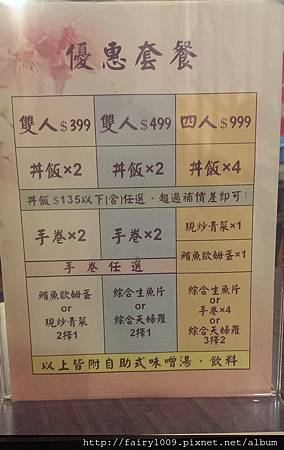 優惠套餐
雙人$399 雙人$499 四人$999
丼飯×2 丼飯×2 丼飯×4
丼飯$135以下(含)任選、超過補價差即可!
手卷×2 手卷×2 現炒青菜×1
鮪魚歐姆蛋×1
手卷任選
鮪魚歐姆蛋 綜合生魚片 綜合生魚片
or or or
現炒青菜 綜合天婦羅 手卷×4
2擇1 2擇1 or
綜合天婦羅
3擇2
以上皆附自助式味噌湯、飲料
http://fairy1009.pixnet.net/album